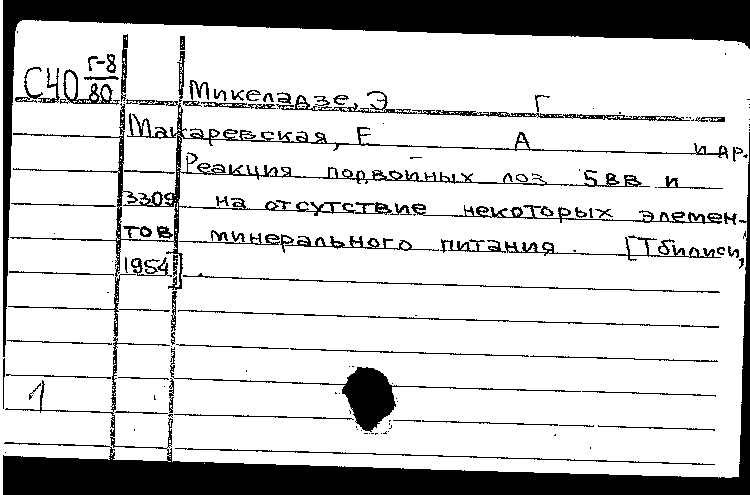 С40 Г-8/80 Микеладзе, Э Г
Макаревская, Е А и др.
Реакция подвойных лоз 5ВВ и
3309 на отсутствие некоторых элемен-
тов минерального питания. [Тбилиси,
1954].
1